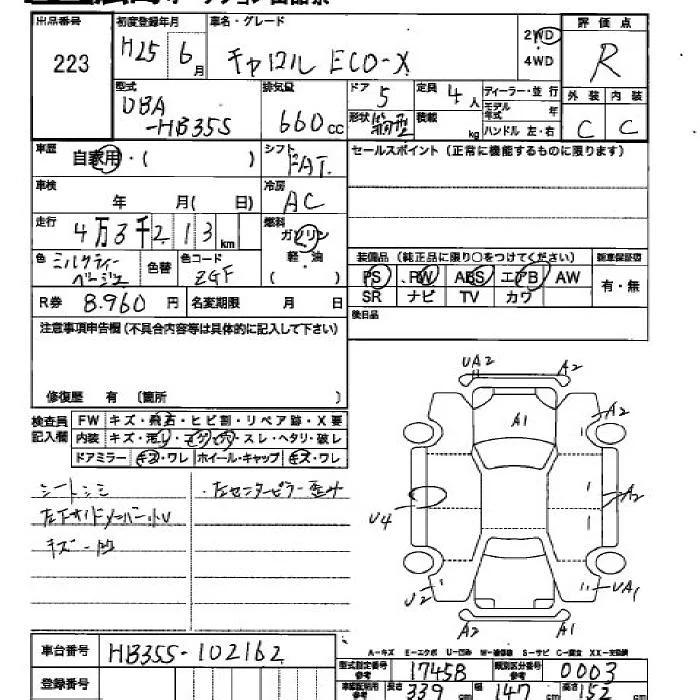 出品番号 初度登録年月 車名・グレード 評価点
223 H25年 6月 キャロル ECO-X 2WD・4WD R
型式 排気量 ドア 定員 ディーラー・並行 外装 内装
DBA 5 4人 モデル年式 年 C C
-HB35S 660cc 形状 箱型 積載 kg ハンドル 左・右
車歴 シフト セールスポイント(正常に機能するものに限ります)
自家用・( ) FAT.
車検 冷房
年 月( 日) AC
走行 燃料
4万3千213km ガソリン
色 色替 色コード 軽・油 装備品(純正品に限り○をつけてください) 新車保証書
ミルクティーベージュ ZGF ( ) PS PW ABS エアB AW 有・無
R券 8.960円 名変期限 月 日 SR ナビ TV カワ
注意事項申告欄(不具合内容等は具体的に記入して下さい) 後日品
修復歴 有 〔箇所 〕
検査員記入欄 FW キズ・飛石・ヒビ割・リペア跡・X要
内装 キズ・汚レ・コゲ穴・スレ・ヘタリ・破レ
ドアミラー キズ・ワレ ホイール・キャップ キズ・ワレ
シートシミ 左センターピラー歪み
左下サイドメンバー小U
キズ 凹
UA2 A2
A1 A2
U4 A2
U2 UA1
A2 A1
車台番号 HB35S-102162
A-キズ E-エクボ U-凹み W-補修跡 S-サビ C-腐食 XX-交換済
登録番号
型式指定番号 参考 17458 類別区分番号 参考 0003
長さ 339cm 幅 147cm 高さ 152cm